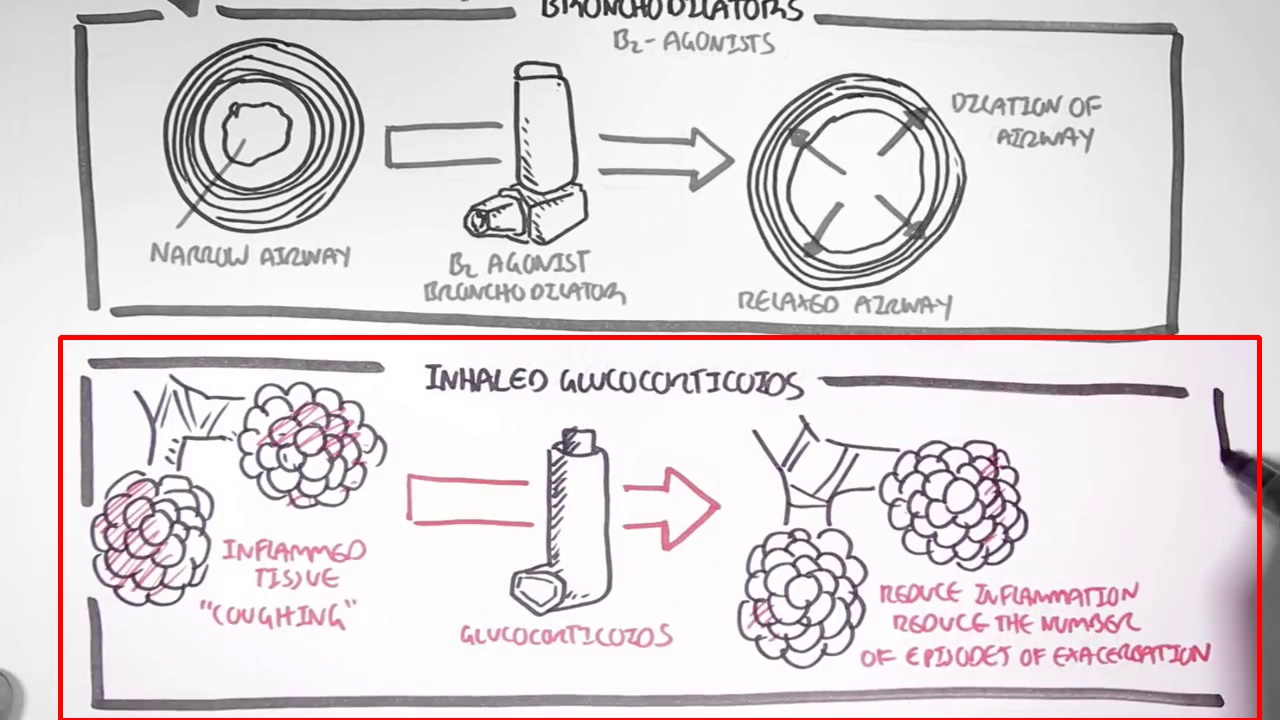 BRONCHODILATORS
B2-AGONISTS
NARROW AIRWAY
B2 AGONIST
BRONCHODILATOR
DILATION OF
AIRWAY
RELAXED AIRWAY
INHALED GLUCOCORTICOIDS
INFLAMMED
TISSUE
"COUGHING"
GLUCOCORTICOIDS
REDUCE INFLAMMATION
REDUCE THE NUMBER
OF EPISODES OF EXACERBATION